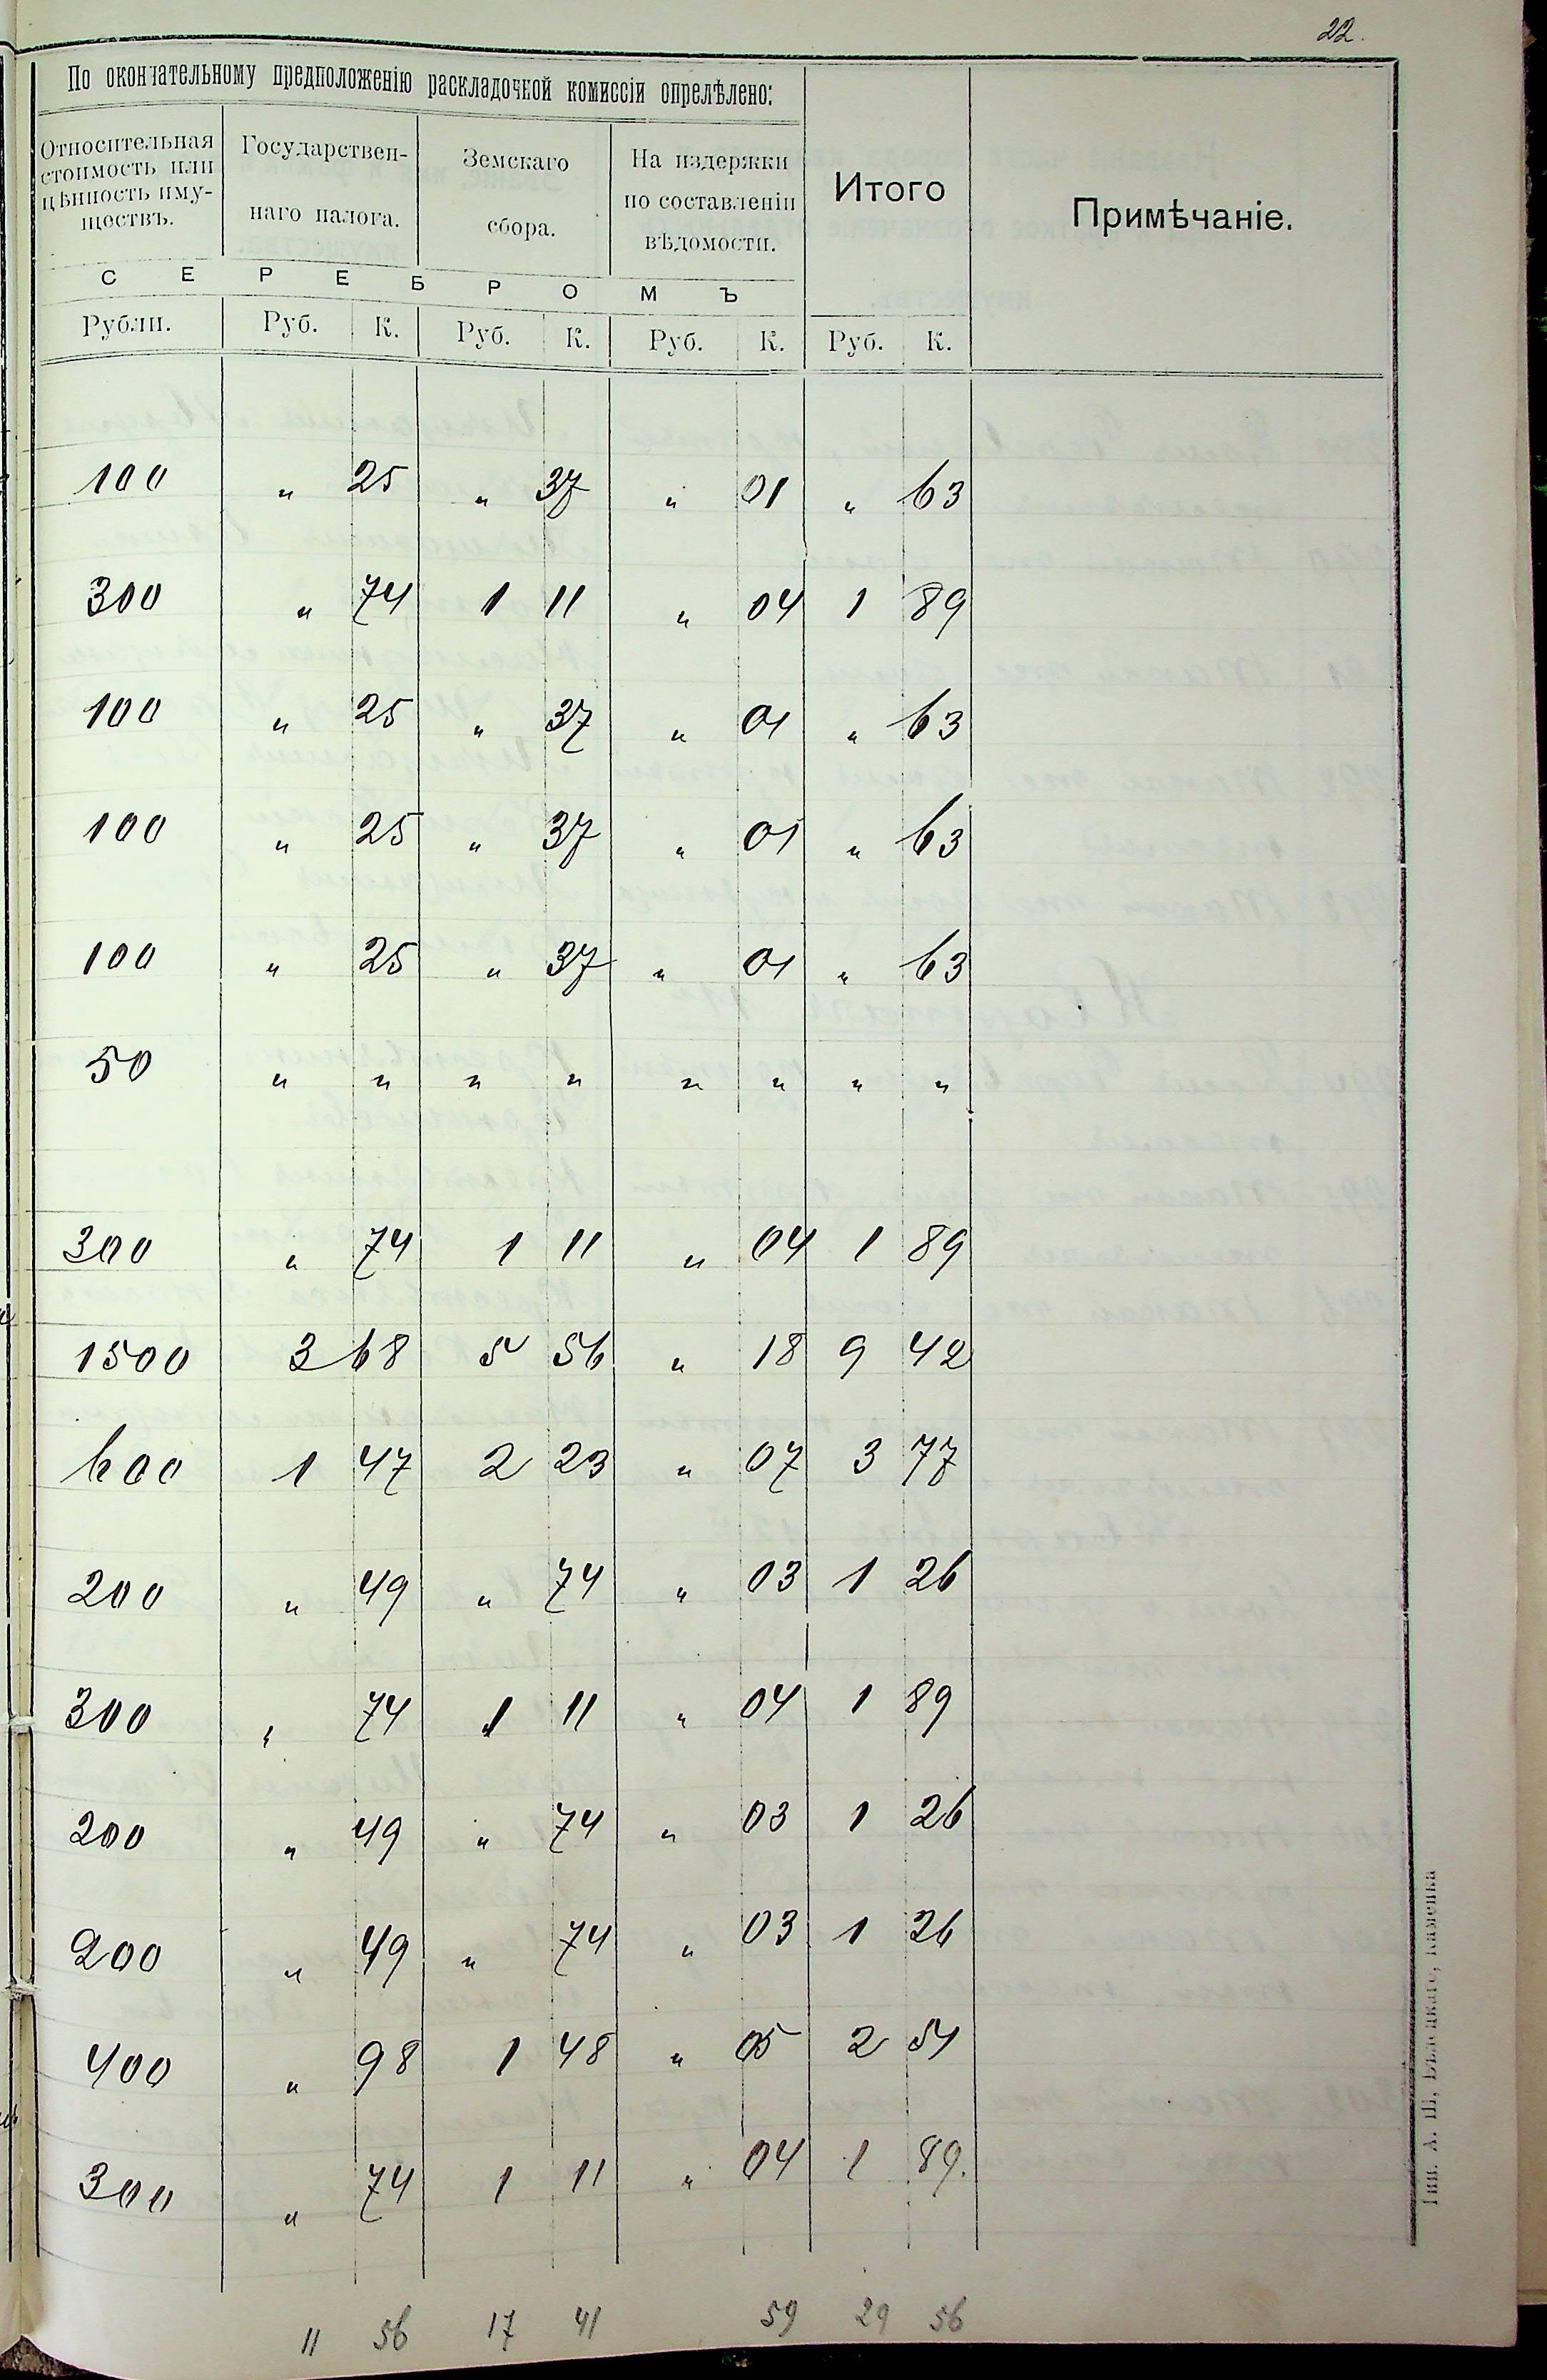 22.
По окончательному предположенію раскладочной комиссіи опредѣлено:
Относительная стоимость или цѣнность иму-ществъ.
Государствен-наго налога.
Земскаго сбора.
На издержки по составленіи вѣдомости.
Итого
Примѣчаніе.
С Е Р Е Б Р О М Ъ
Рубли. Руб. К. Руб. К. Руб. К. Руб. К.
100 " 25 " 37 " 01 " 63
300 " 74 1 11 " 04 1 89
100 " 25 " 37 " 01 " 63
100 " 25 " 37 " 01 " 63
100 " 25 " 37 " 01 " 63
50 " " " " " " " "
300 " 74 1 11 " 04 1 89
1500 3 68 5 56 " 18 9 42
600 1 47 2 23 " 07 3 77
200 " 49 " 74 " 03 1 26
300 " 74 1 11 " 04 1 89
200 " 49 " 74 " 03 1 26
200 " 49 " 74 " 03 1 26
400 " 98 1 48 " 05 2 51
300 " 74 1 11 " 04 1 89.
11 56 17 41 59 29 56
Тип. А. Ш. Бѣлецкаго, Каменка